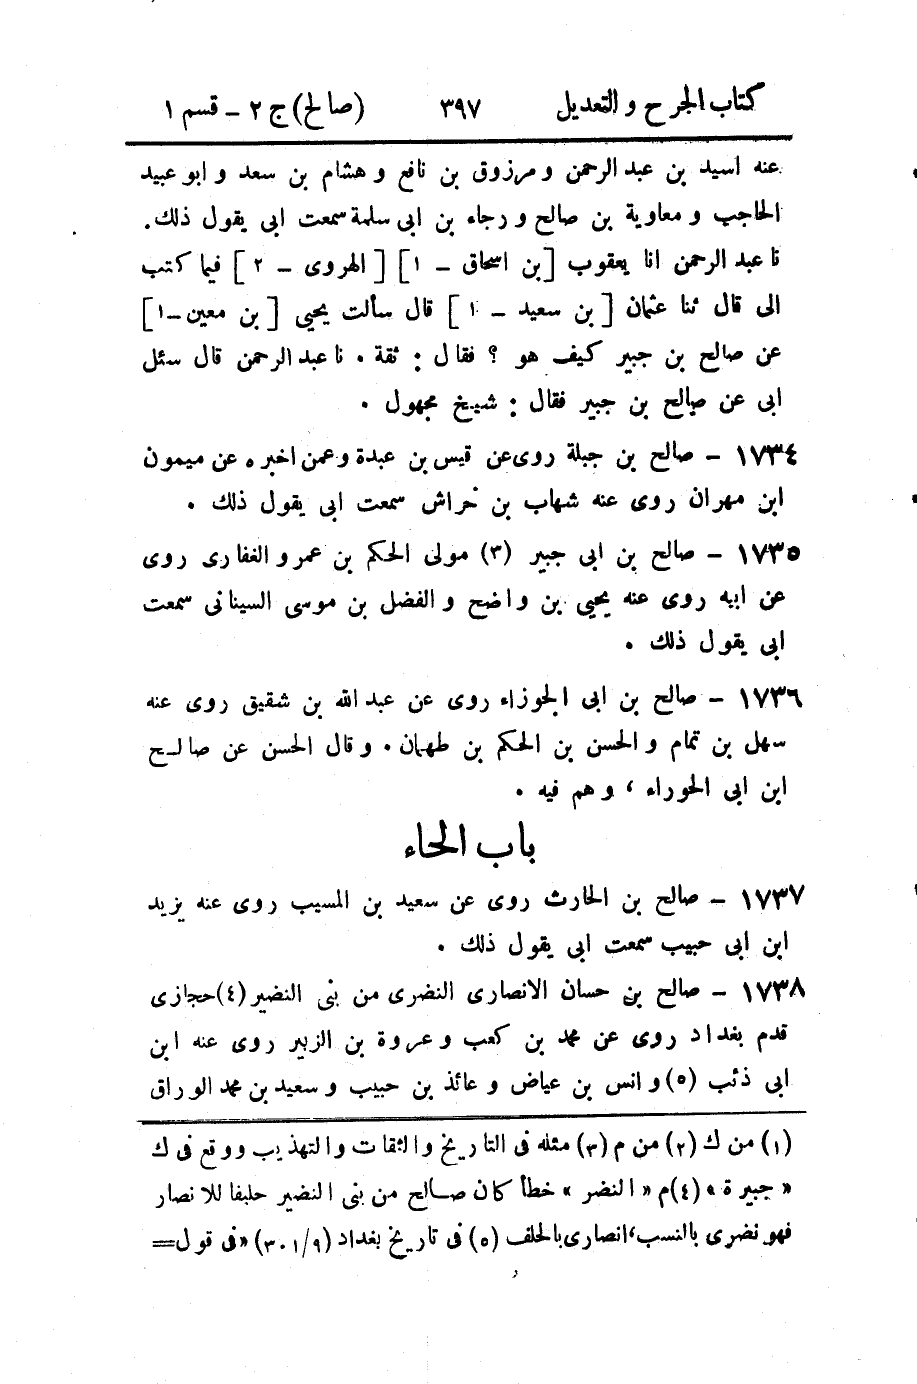 كتاب الجرح والتعديل ٣٩٧ (صالح) ج ٢ - قسم ١
عنه اسيد بن عبد الرحمن ومرزوق بن نافع وهشام بن سعد وابو عبيد
الحاجب ومعاوية بن صالح ورجاء بن ابى سلمة سمعت ابى يقول ذلك.
نا عبد الرحمن انا يعقوب [بن اسحاق - ١] [الهروى - ٢] فيما كتب
الى قال ثنا عثمان [بن سعيد - ١] قال سألت يحيى [بن معين - ١]
عن صالح بن جبير كيف هو ؟ فقال : ثقة . نا عبد الرحمن قال سئل
ابى عن صالح بن جبير فقال : شيخ مجهول .
١٧٣٤ - صالح بن جبلة روى عن قيس بن عبدة وعمن اخبره عن ميمون
ابن مهران روى عنه شهاب بن خراش سمعت ابى يقول ذلك .
١٧٣٥ - صالح بن ابى جبير (٣) مولى الحكم بن عمرو الغفارى روى
عن ابيه روى عنه يحيى بن واضح والفضل بن موسى السينانى سمعت
ابى يقول ذلك .
١٧٣٦ - صالح بن ابى الجوزاء روى عن عبد الله بن شقيق روى عنه
سهل بن تمام والحسن بن الحكم بن طهمان . وقال الحسن عن صالح
ابن ابى الحوراء ، وهم فيه .
باب الحاء
١٧٣٧ - صالح بن الحارث روى عن سعيد بن المسيب روى عنه يزيد
ابن ابى حبيب سمعت ابى يقول ذلك .
١٧٣٨ - صالح بن حسان الانصارى النضرى من بنى النضير (٤) حجازى
قدم بغداد روى عن محمد بن كعب وعروة بن الزبير روى عنه ابن
ابى ذئب (٥) وانس بن عياض وعائذ بن حبيب وسعيد بن محمد الوراق
(١) من ك (٢) من م (٣) مثله فى التاريخ والثقات والتهذيب ووقع فى ك
« جبيرة » (٤) م « النضر » خطأ كان صالح من بنى النضير حليفا للانصار
فهو نضرى بالنسب ، انصارى بالحلف (٥) فى تاريخ بغداد (٩/٣٠١) «فى قول=